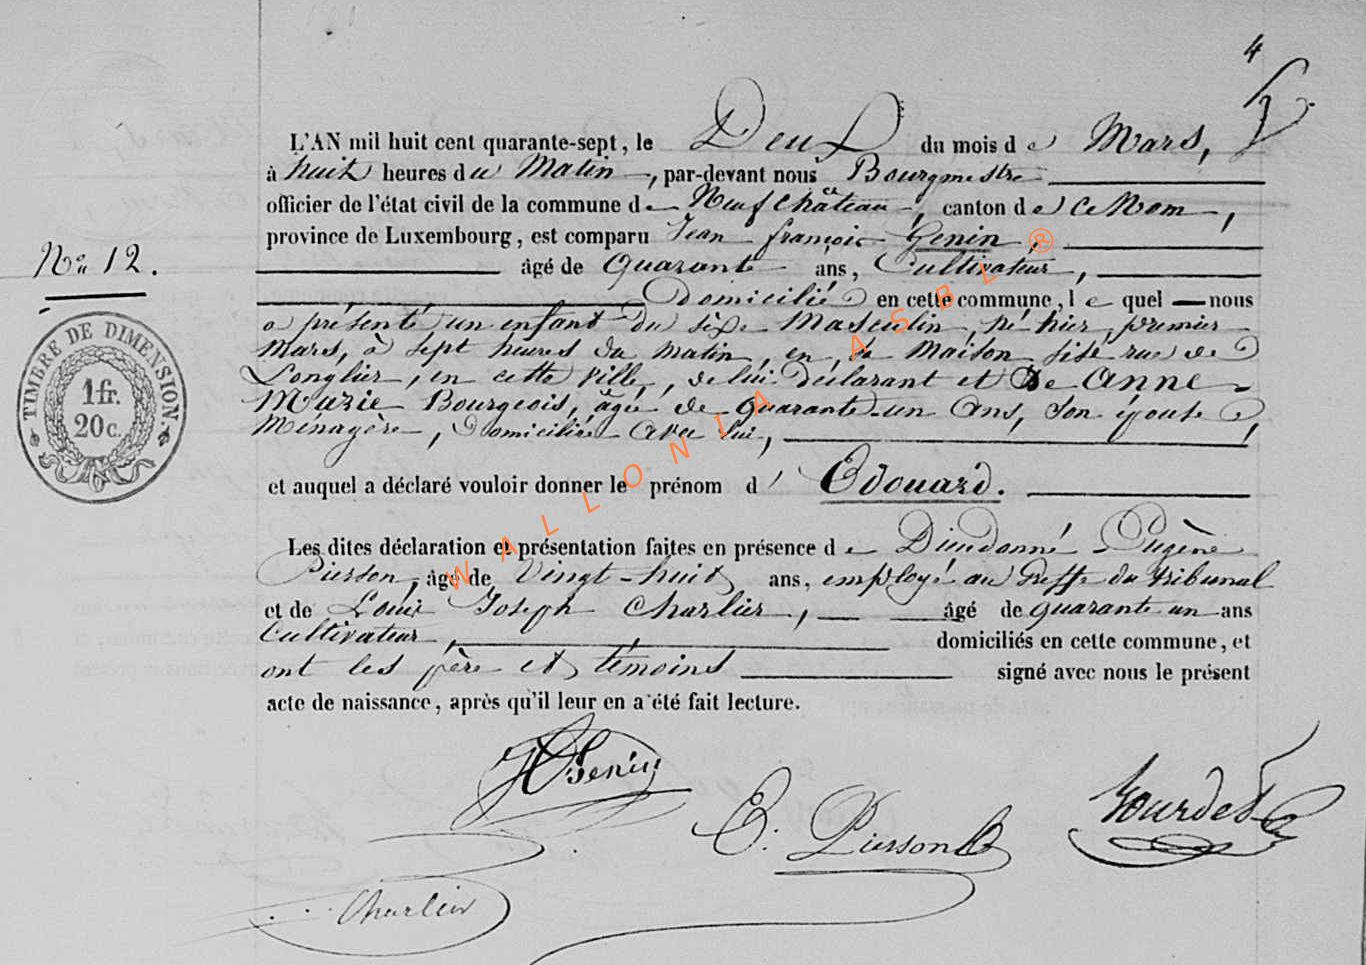 4
L'AN mil huit cent quarante-sept, le Deux du mois de Mars,
à huit heures du Matin, par-devant nous Bourgmestre
officier de l'état civil de la commune de Neufchâteau, canton de ce Nom,
province de Luxembourg, est comparu Jean françois Genin,
N° 12.
âgé de Quarante ans, Cultivateur,
Domicilié en cette commune, le quel nous
a présenté un enfant du sexe Masculin, né hier, premier
Mars, à sept heures du matin, en sa Maison sise rue de
Longlier, en cette Ville, de lui déclarant et de Anne
Marie Bourgeois, âgée de quarante-un Ans, son épouse,
Ménagère, Domiciliée avec lui,
et auquel a déclaré vouloir donner le prénom d' Edouard.
Les dites déclaration et présentation faites en présence de Dieudonné Eugène
Pierson, âgé de Vingt-huit ans, employé au Greffe du tribunal
et de Louis Joseph Charlier, âgé de quarante un ans
Cultivateur, domiciliés en cette commune, et
ont les père et témoins signé avec nous le présent
acte de naissance, après qu'il leur en a été fait lecture.
TIMBRE DE DIMENSION.
1 fr.
20 c.
Genin
E. Pierson
Gourdet
Charlier
WALLONIA ASBL ®